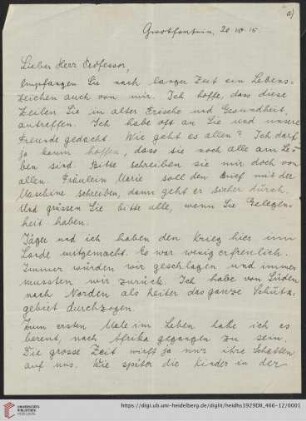 Grootfontein, 20
Lieber Herr Professor,
empfangen Sie nach langer Zeit ein Lebens-
zeichen auch von mir. Ich hoffe, dass diese
Zeilen Sie in alter Frische und Gesundheit,
antreffen. Ich habe oft an Sie und unsere
Freunde gedacht. Wie geht es allen? Ich darf
ja kaum hoffen, dass sie noch alle am Le-
ben sind. Bitte schreiben sie mir doch von
allen. Fräulein Marie soll den Brief mit der
Maschine schreiben, dann geht er sicher durch.
Und grüssen Sie bitte alle, wenn Sie Gelegen-
heit haben.
Jäger und ich haben den Krieg hier im
Lande mitgemacht. Es war wenig erfreulich.
Immer wurden wir geschlagen und immer
mussten wir zurück. Ich habe von Süden
nach Norden als Reiter das ganze Schutz-
gebiet durchzogen.
Zum ersten Male im Leben habe ich es
bereut, nach Afrika gegangen zu sein.
Die grosse Zeit wirft ja nur ihre Schatten
auf uns. Wie später die Kinder in der
https://digi.ub.uni-heidelberg.de/diglit/heidhs1979DII_466-12/0001